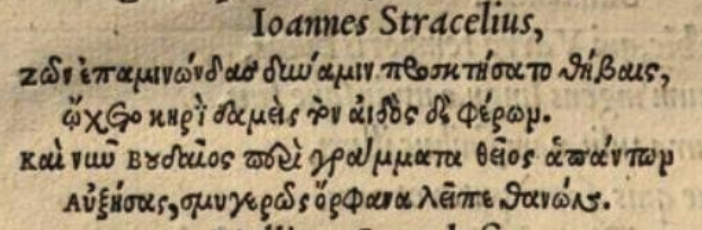 Ioannes Stracelius,
ζῶν ἐπαμινώνδας δύναμιν προσκτήσατο θήβαις,
ᾤχετο κηρὶ δαμεὶς τὴν ἀιδὸς δὲ φέρων.
καὶ νῦν βουδαῖος περὶ γράμματα θεῖος ἁπάντων
Αὐξήσας, σμυγερῶς ὄρφανα λεῖπε θανών.